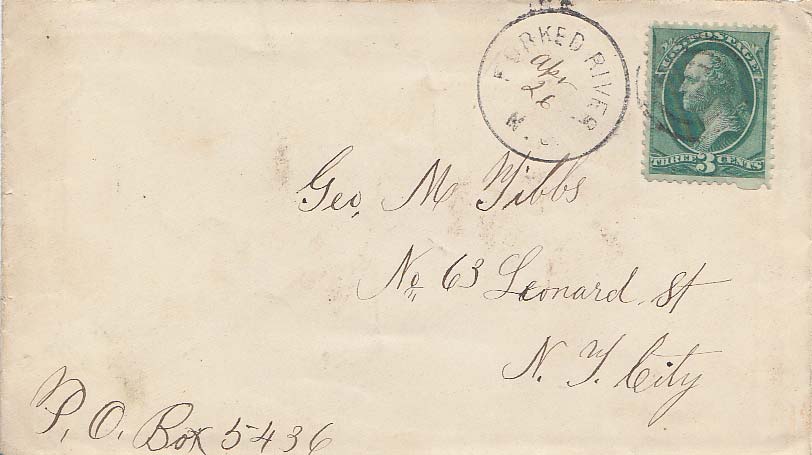 FORKED RIVER
Apr
26
N.J.
U.S. POSTAGE
THREE 3 CENTS
Geo. M Tibbs
No. 63 Leonard St
N. Y. City
P. O. Box 5436